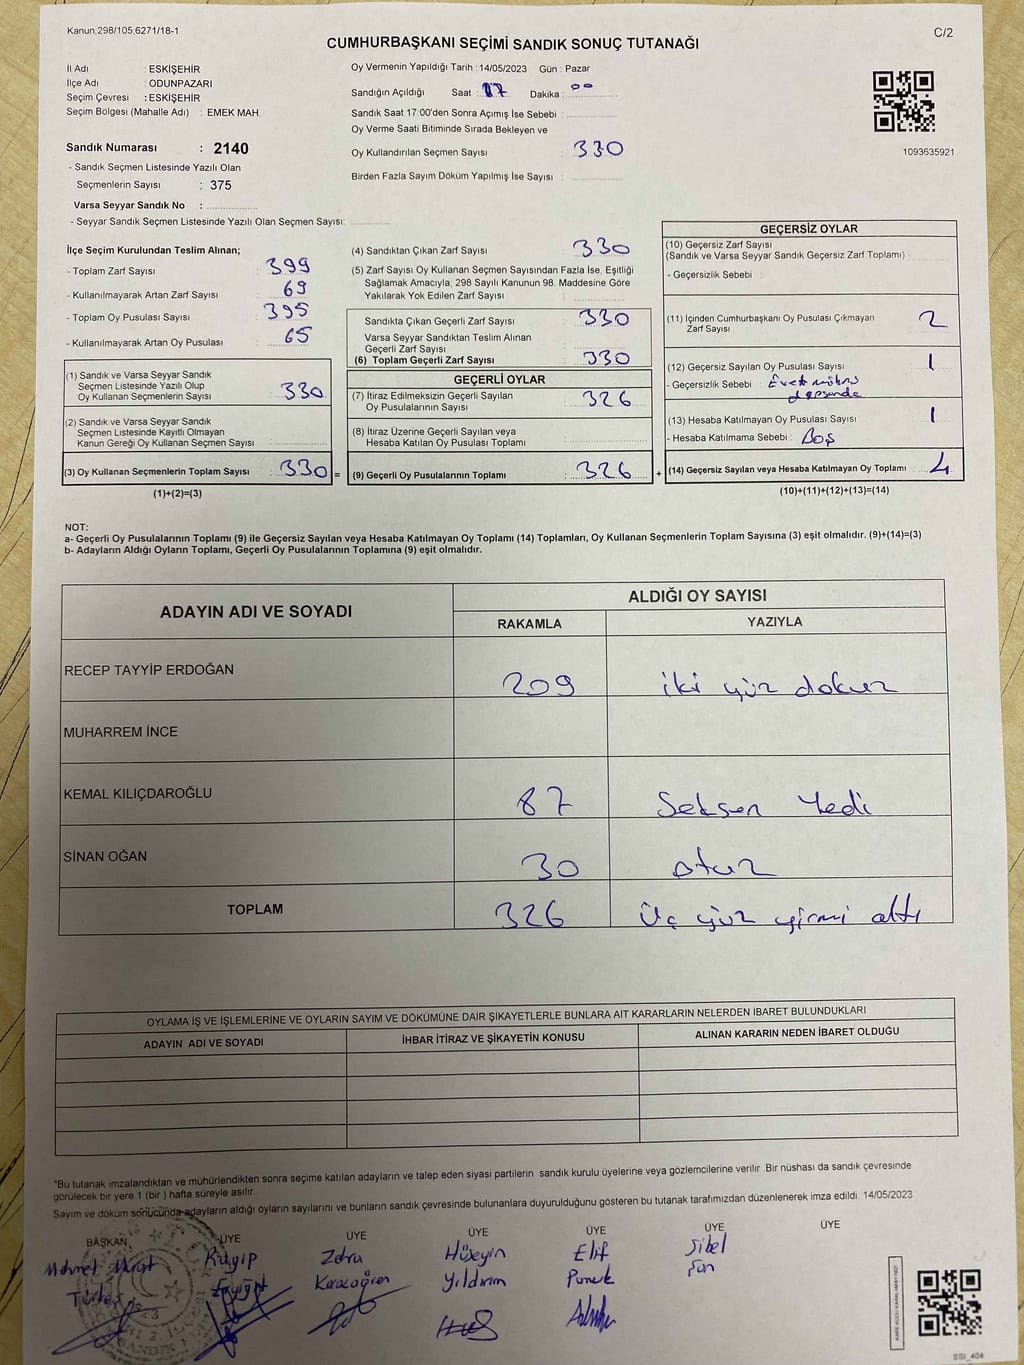 Kanun;298/105;6271/18-1
C/2
CUMHURBAŞKANI SEÇİMİ SANDIK SONUÇ TUTANAĞI
İl Adı : ESKİŞEHİR
İlçe Adı : ODUNPAZARI
Seçim Çevresi : ESKİŞEHİR
Seçim Bölgesi (Mahalle Adı) : EMEK MAH.
Oy Vermenin Yapıldığı Tarih : 14/05/2023 Gün : Pazar
Sandığın Açıldığı Saat : 17 Dakika : 00
Sandık Saat 17:00'den Sonra Açımış İse Sebebi :
Oy Verme Saati Bitiminde Sırada Bekleyen ve
Oy Kullandırılan Seçmen Sayısı 330
Birden Fazla Sayım Döküm Yapılmış İse Sayısı :
1093635921
Sandık Numarası : 2140
- Sandık Seçmen Listesinde Yazılı Olan
Seçmenlerin Sayısı : 375
Varsa Seyyar Sandık No :
- Seyyar Sandık Seçmen Listesinde Yazılı Olan Seçmen Sayısı:
İlçe Seçim Kurulundan Teslim Alınan;
- Toplam Zarf Sayısı : 399
- Kullanılmayarak Artan Zarf Sayısı : 69
- Toplam Oy Pusulası Sayısı : 395
- Kullanılmayarak Artan Oy Pusulası : 65
(1) Sandık ve Varsa Seyyar Sandık
Seçmen Listesinde Yazılı Olup
Oy Kullanan Seçmenlerin Sayısı : 330
(2) Sandık ve Varsa Seyyar Sandık
Seçmen Listesinde Kayıtlı Olmayan
Kanun Gereği Oy Kullanan Seçmen Sayısı :
(3) Oy Kullanan Seçmenlerin Toplam Sayısı : 330 =
(1)+(2)=(3)
(4) Sandıktan Çıkan Zarf Sayısı : 330
(5) Zarf Sayısı Oy Kullanan Seçmen Sayısından Fazla İse, Eşitliği
Sağlamak Amacıyla, 298 Sayılı Kanunun 98. Maddesine Göre
Yakılarak Yok Edilen Zarf Sayısı :
Sandıkta Çıkan Geçerli Zarf Sayısı : 330
Varsa Seyyar Sandıktan Teslim Alınan
Geçerli Zarf Sayısı
(6) Toplam Geçerli Zarf Sayısı : 330
GEÇERLİ OYLAR
(7) İtiraz Edilmeksizin Geçerli Sayılan
Oy Pusulalarının Sayısı : 326
(8) İtiraz Üzerine Geçerli Sayılan veya
Hesaba Katılan Oy Pusulası Toplamı :
(9) Geçerli Oy Pusulalarının Toplamı : 326 +
GEÇERSİZ OYLAR
(10) Geçersiz Zarf Sayısı
(Sandık ve Varsa Seyyar Sandık Geçersiz Zarf Toplamı)
- Geçersizlik Sebebi :
(11) İçinden Cumhurbaşkanı Oy Pusulası Çıkmayan
Zarf Sayısı 2
(12) Geçersiz Sayılan Oy Pusulası Sayısı : 1
- Geçersizlik Sebebi : Evet mührü
dışında
(13) Hesaba Katılmayan Oy Pusulası Sayısı : 1
- Hesaba Katılmama Sebebi : Boş
(14) Geçersiz Sayılan veya Hesaba Katılmayan Oy Toplamı : 4
(10)+(11)+(12)+(13)=(14)
NOT:
a- Geçerli Oy Pusulalarının Toplamı (9) ile Geçersiz Sayılan veya Hesaba Katılmayan Oy Toplamı (14) Toplamları, Oy Kullanan Seçmenlerin Toplam Sayısına (3) eşit olmalıdır. (9)+(14)=(3)
b- Adayların Aldığı Oyların Toplamı, Geçerli Oy Pusulalarının Toplamına (9) eşit olmalıdır.
ADAYIN ADI VE SOYADI
ALDIĞI OY SAYISI
RAKAMLA YAZIYLA
RECEP TAYYİP ERDOĞAN 209 iki yüz dokuz
MUHARREM İNCE
KEMAL KILIÇDAROĞLU 87 Seksen Yedi
SİNAN OĞAN 30 otuz
TOPLAM 326 üç yüz yirmi altı
OYLAMA İŞ VE İŞLEMLERİNE VE OYLARIN SAYIM VE DÖKÜMÜNE DAİR ŞİKAYETLERLE BUNLARA AİT KARARLARIN NELERDEN İBARET BULUNDUKLARI
ADAYIN ADI VE SOYADI İHBAR İTİRAZ VE ŞİKAYETİN KONUSU ALINAN KARARIN NEDEN İBARET OLDUĞU
*Bu tutanak imzalandıktan ve mühürlendikten sonra seçime katılan adayların ve talep eden siyasi partilerin sandık kurulu üyelerine veya gözlemcilerine verilir .Bir nüshası da sandık çevresinde
görülecek bir yere 1 (bir ) hafta süreyle asılır.
Sayım ve döküm sonucunda adayların aldığı oyların sayılarını ve bunların sandık çevresinde bulunanlara duyurulduğunu gösteren bu tutanak tarafımızdan düzenlenerek imza edildi. 14/05/2023
BAŞKAN ÜYE ÜYE ÜYE ÜYE ÜYE ÜYE
Mehmet Ragıp Zehra Hüseyin Elif Sibel
Yıldırım
SSI_404